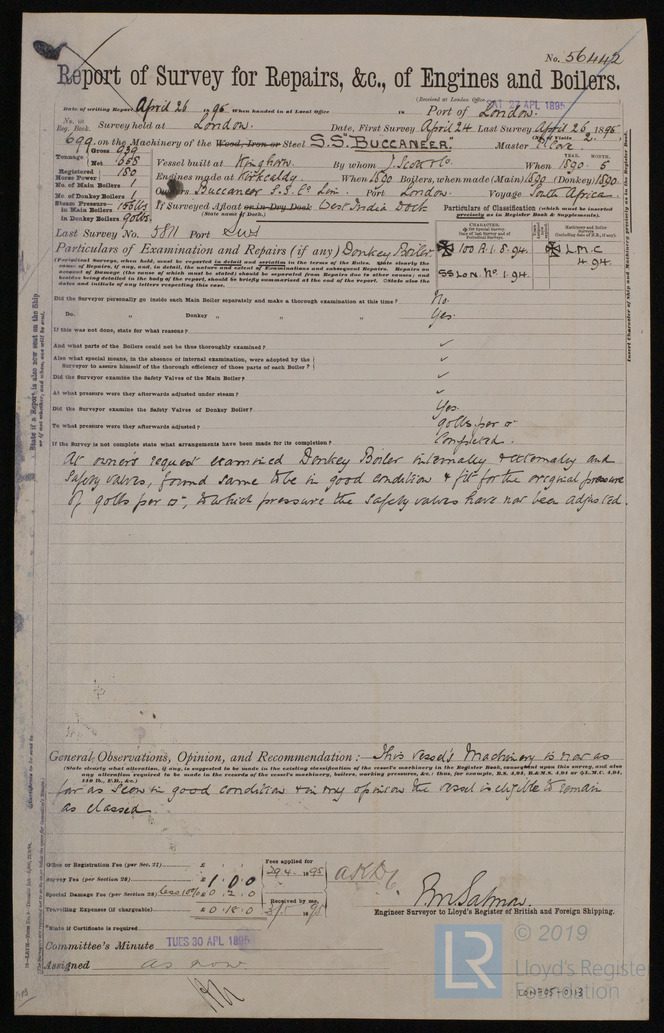 No. 56442
Report of Survey for Repairs, &c., of Engines and Boilers.
(Received at London Office SAT 27 APL 1895
Date of writing Report April 26 1895 When handed in at Local Office 18 Port of London.
No. in Reg. Book. Survey held at London. Date, First Survey April 24 Last Survey April 26 1895
(No. of Visits 2.
699 on the Machinery of the Wood, Iron or Steel S.S. "BUCCANEER." Master
Tonnage Gross 939 Net 658 Vessel built at Kinghorn. By whom J. Scott & Co. When 1890. 5
YEAR. MONTH.
Registered Horse Power 180 Engines made at Kirkcaldy. When 1890 Boilers, when made (Main) 1890 (Donkey) 1890.
No. of Main Boilers 1 Owners Buccaneer S.S. Co Lim. Port London. Voyage South Africa
No. of Donkey Boilers 1
Steam Pressure in Main Boilers 160 lbs If Surveyed Afloat or in Dry Dock West India Dock
in Donkey Boilers 90 lbs. (State name of Dock.)
Particulars of Classification (which must be inserted precisely as in Register Book & Supplements).
Last Survey No. 5811 Port
Particulars of Examination and Repairs (if any) Donkey Boiler
100 A.1. 8.94. L.M.C 4.94.
SS Lon. No 1.94.
Did the Surveyor personally go inside each Main Boiler separately and make a thorough examination at this time? No.
Do. " Donkey " " " Yes.
If this was not done, state for what reasons?
And what parts of the Boilers could not be thus thoroughly examined? ✓
Also what special means, in the absence of internal examination, were adopted by the Surveyor to assure himself of the thorough efficiency of those parts of each Boiler? ✓
Did the Surveyor examine the Safety Valves of the Main Boiler? ✓
At what pressure were they afterwards adjusted under steam? ✓
Did the Surveyor examine the Safety Valves of Donkey Boiler? Yes.
To what pressure were they afterwards adjusted? 90 lbs per □"
If the Survey is not complete state what arrangements have been made for its completion? Completed.
At owner's request examined Donkey Boiler internally & externally and
Safety valves, found same to be in good condition & fit for the original pressure
of 90 lbs per □", to which pressure the safety valves have now been adjusted.
General Observations, Opinion, and Recommendation:— This vessel's Machinery is now as
far as seen in good condition & in my opinion the vessel is eligible to remain
as classed.
Office or Registration Fee (per Sec. 27) £
Survey Fee (per Section 28) £ 1 . 0 . 0
Special Damage Fee (per Section 28) less 10% £ 0 . 2 . 0
Travelling Expenses (if chargeable) £ 0 . 18 . 0
Fees applied for
29.4. 1895
Received by me,
3/5 1895
Engineer Surveyor to Lloyd's Register of British and Foreign Shipping.
*State if Certificate is required
Committee's Minute TUES 30 APL 1895
Assigned as now
LR
© 2019
Lloyd's Register
Foundation
LON-705-0113